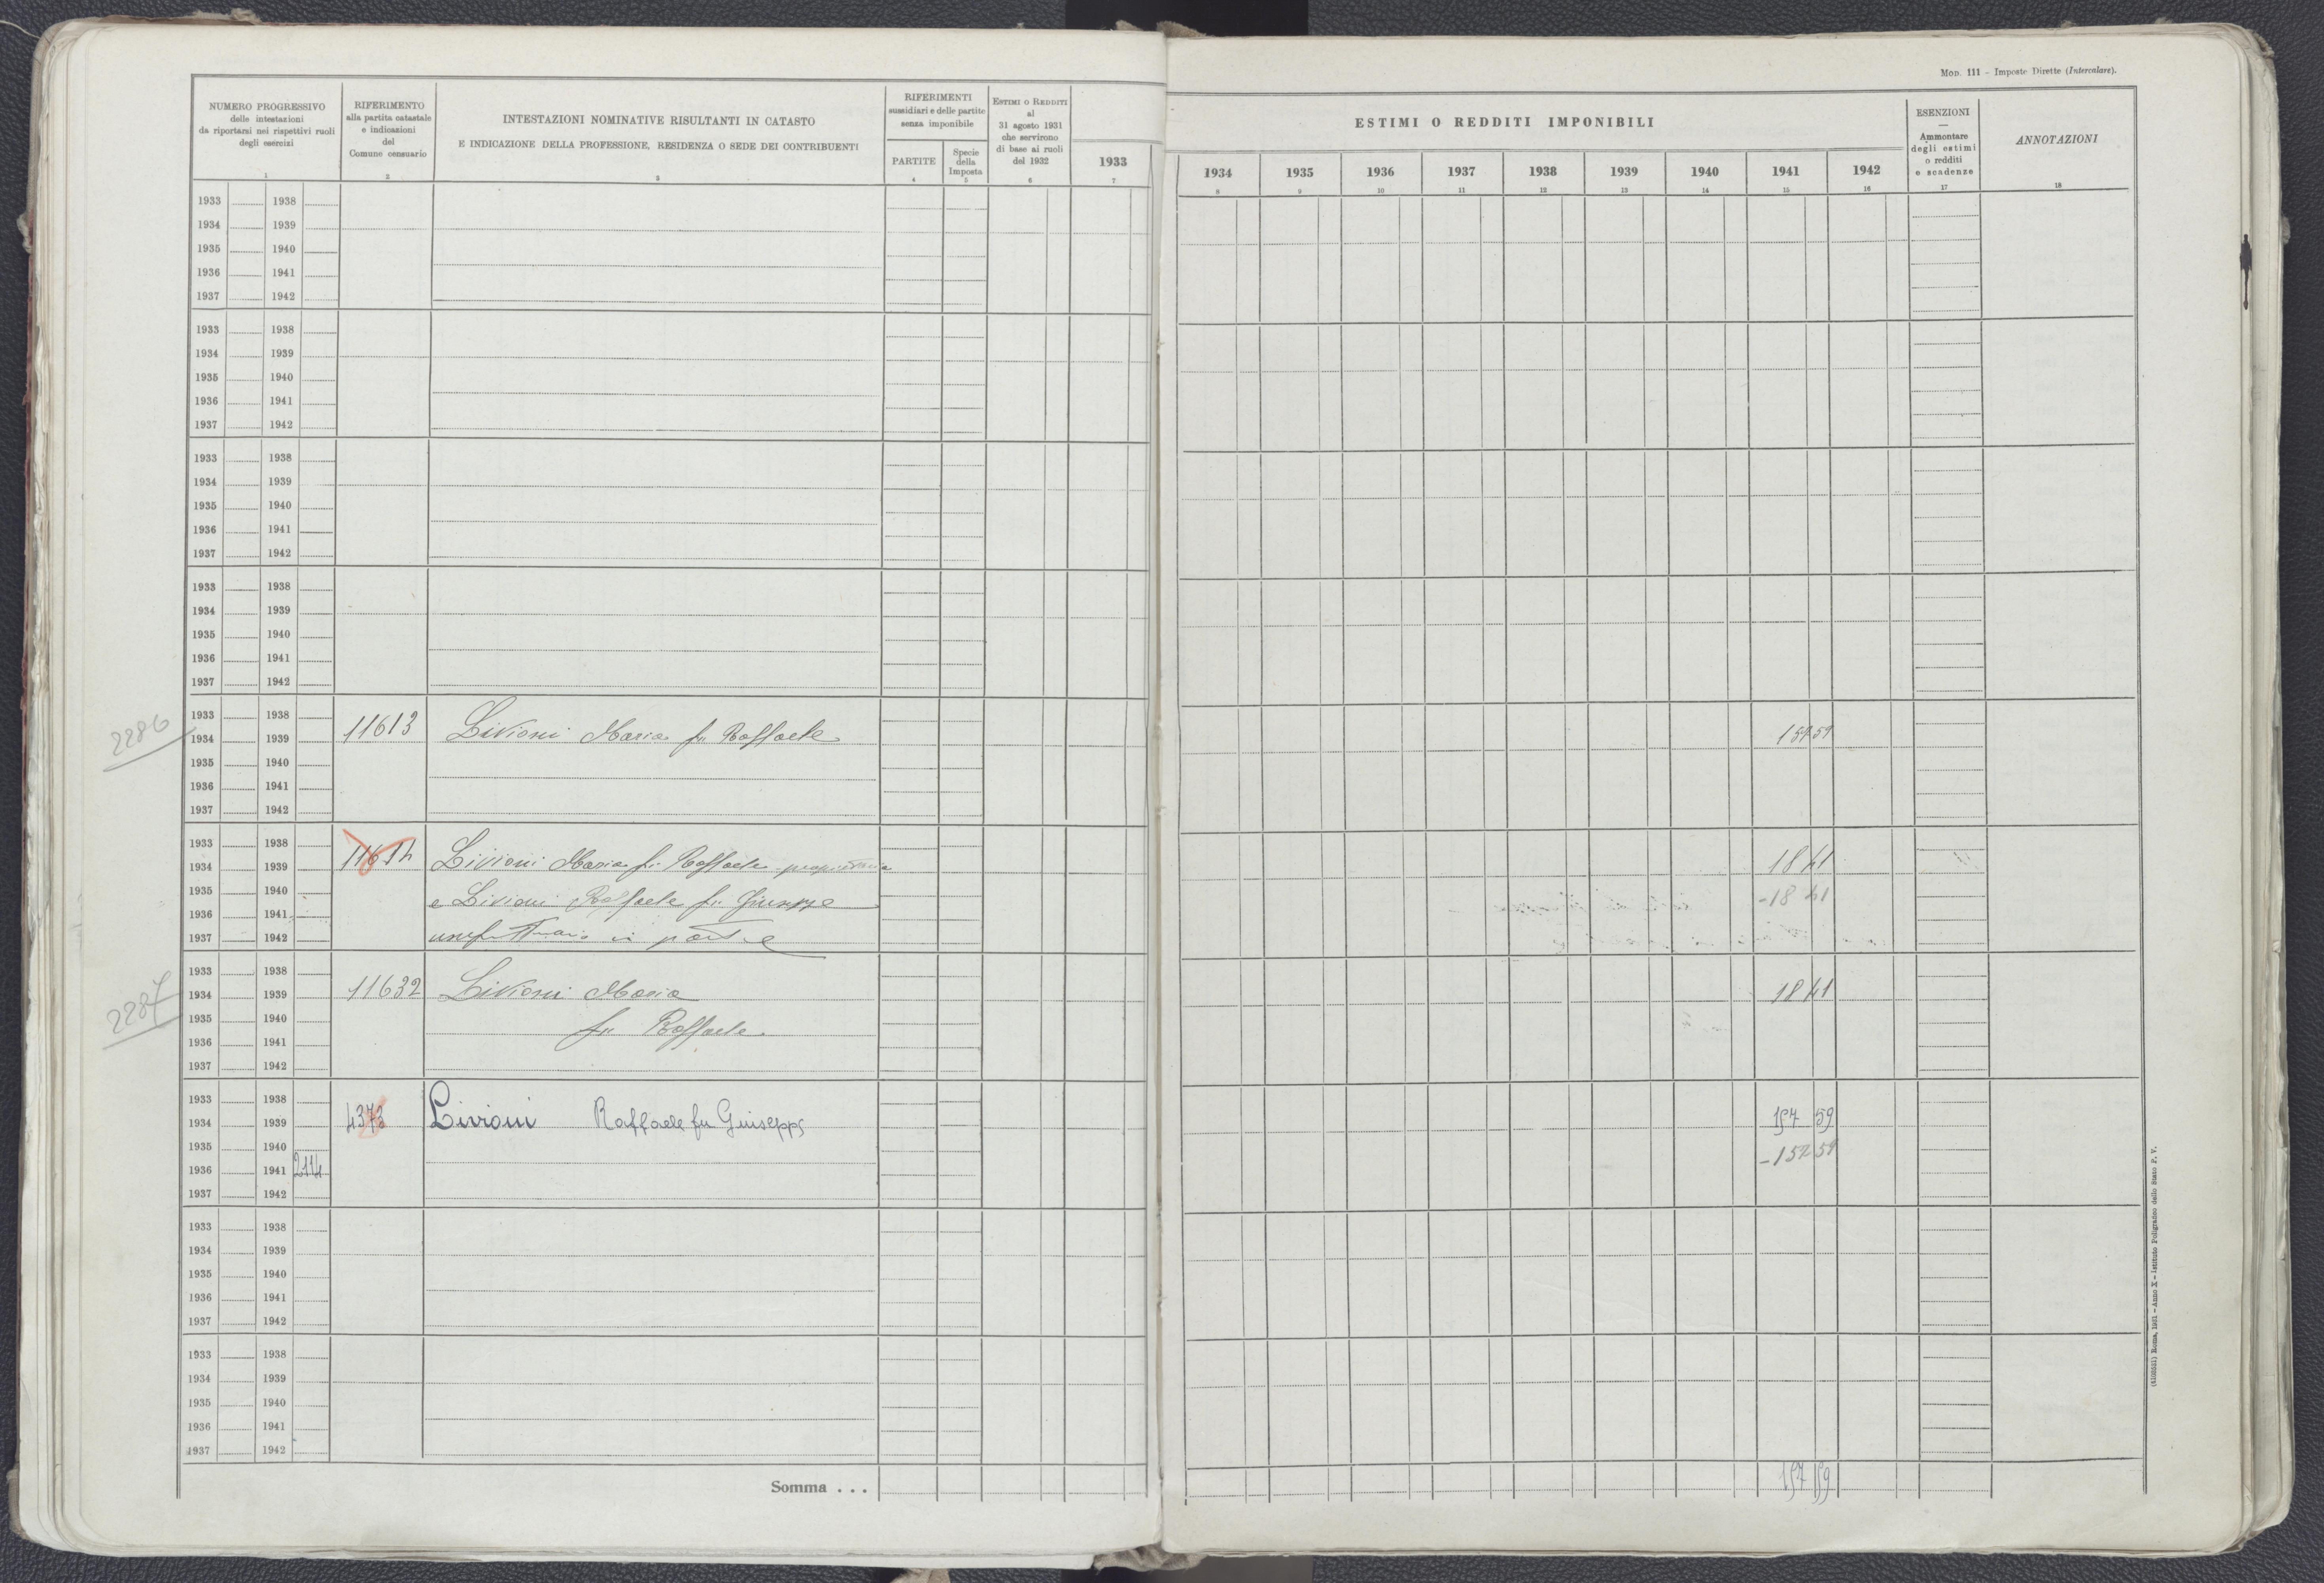 Mod. 111 – Imposte Dirette (Intercalare).
NUMERO PROGRESSIVO
delle intestazioni
da riportarsi nei rispettivi ruoli
degli esercizi
1
RIFERIMENTO
alla partita catastale
e indicazioni
del
Comune censuario
2
INTESTAZIONI NOMINATIVE RISULTANTI IN CATASTO
E INDICAZIONE DELLA PROFESSIONE, RESIDENZA O SEDE DEI CONTRIBUENTI
3
RIFERIMENTI
sussidiari e delle partite
senza imponibile
PARTITE
4
Specie
della
Imposta
5
ESTIMI O REDDITI
al
31 agosto 1931
che servirono
di base ai ruoli
del 1932
6
ESTIMI O REDDITI IMPONIBILI
1933 1934 1935 1936 1937 1938 1939 1940 1941 1942
7 8 9 10 11 12 13 14 15 16
ESENZIONI
—
Ammontare
degli estimi
o redditi
e scadenze
17
ANNOTAZIONI
18
1933 1938
1934 1939
1935 1940
1936 1941
1937 1942
1933 1938
1934 1939
1935 1940
1936 1941
1937 1942
1933 1938
1934 1939
1935 1940
1936 1941
1937 1942
1933 1938
1934 1939
1935 1940
1936 1941
1937 1942
2286
1933 1938
11613 Livioni Maria fu Raffaele 157 59
1934 1939
1935 1940
1936 1941
1937 1942
1933 1938
11614 Livioni Maria fu Raffaele proprietaria 18 41
1934 1939
1935 1940
e Livioni Raffaele fu Giuseppe -18 41
1936 1941
usufruttuario in parte
1937 1942
2287
1933 1938
11632 Livioni Maria 18 41
1934 1939
1935 1940
fu Raffaele
1936 1941
1937 1942
1933 1938
4373 Livioni Raffaele fu Giuseppe 157 59
1934 1939
1935 1940
-157 59
1936 1941 2114
1937 1942
1933 1938
1934 1939
1935 1940
1936 1941
1937 1942
1933 1938
1934 1939
1935 1940
1936 1941
1937 1942
Somma . . . 157 59
(4102551) Roma, 1931 – Anno X – Istituto Poligrafico dello Stato P. V.